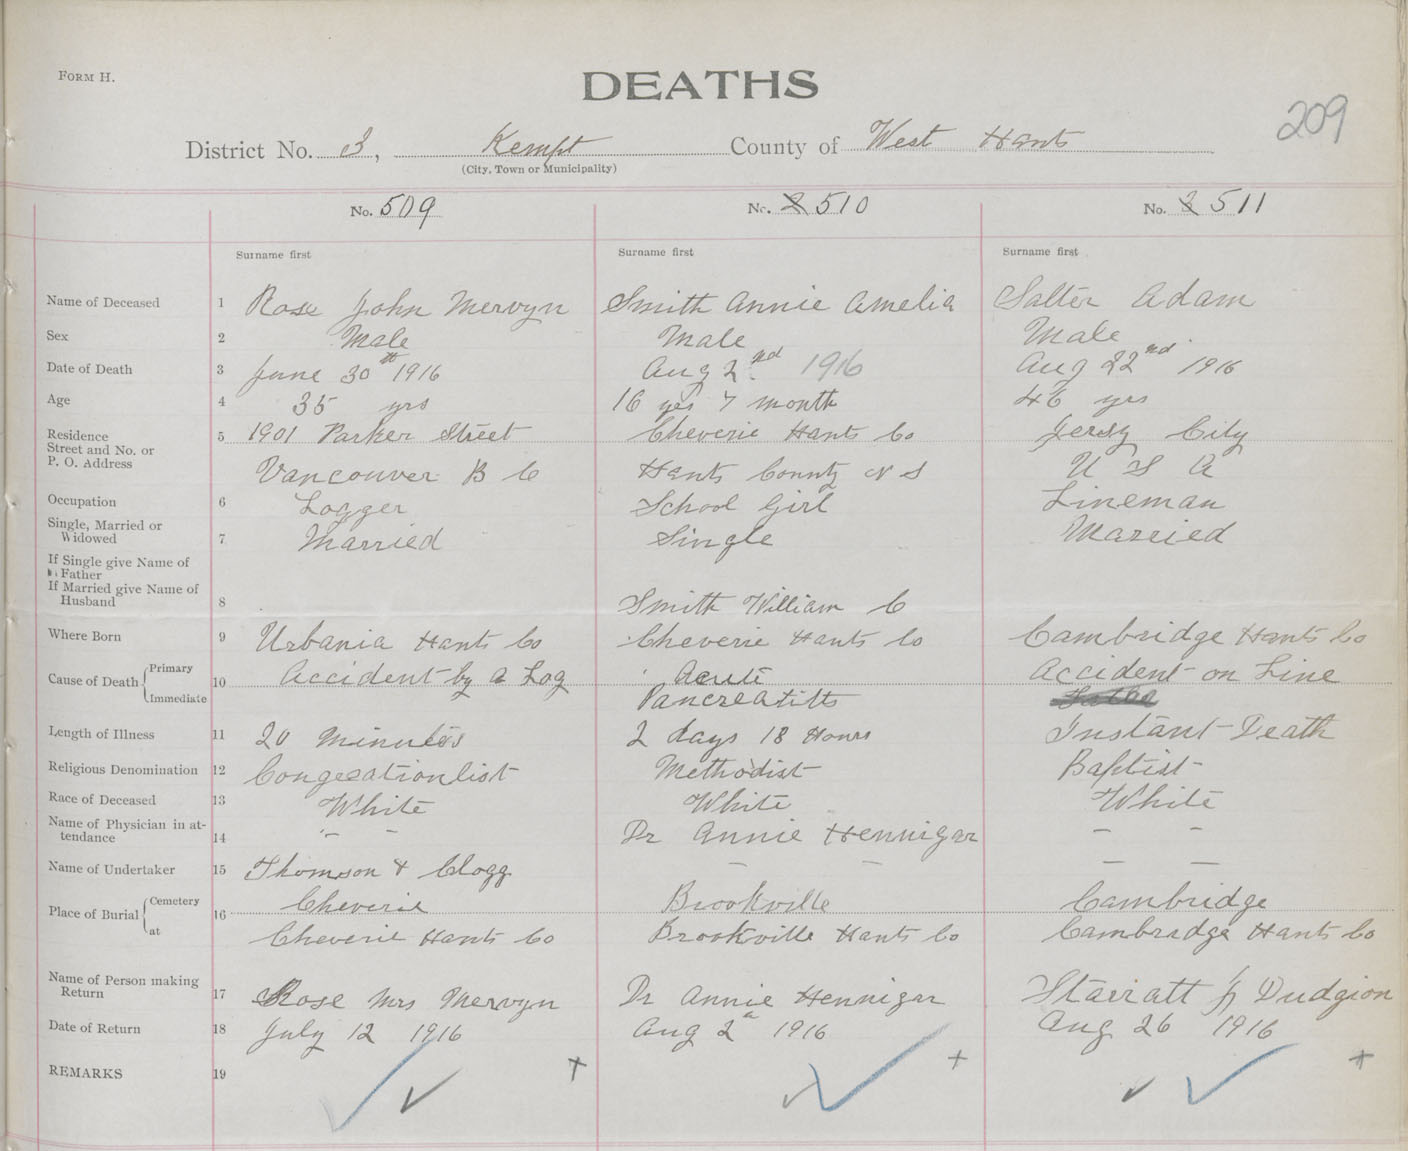 FORM H.
DEATHS
209
District No. 3, Kempt County of West Hants
(City, Town or Municipality)
No. 509 No. 2 510 No. 3 511
Surname first Surname first Surname first
Name of Deceased 1 Rose John Mervyn Smith Annie Amelia Salter Adam
Sex 2 Male Male Male
Date of Death 3 June 30th 1916 Aug 2nd 1916 Aug 22nd 1916
Age 4 35 yrs 16 yes 7 month 46 yrs
Residence 5 1901 Parker Street Cheverie Hants Co Jersy City
Street and No. or
P. O. Address Vancouver B C Hants County N S U S A
Occupation 6 Logger School Girl Lineman
Single, Married or
Widowed 7 Married Single Married
If Single give Name of
Father
If Married give Name of
Husband 8 Smith William C
Where Born 9 Urbania Hants Co Cheverie Hants Co Cambridge Hants Co
Cause of Death Primary 10 Accident by a Log Acute Accident on Line
Immediate Pancreatitis
Length of Illness 11 20 minutes 2 days 18 Hours Instant Death
Religious Denomination 12 Congreationlist Methodist Baptist
Race of Deceased 13 White White White
Name of Physician in at-
tendance 14 – – Dr Annie Hennigar – –
Name of Undertaker 15 Thomson & Clogg – – – –
Place of Burial Cemetery 16 Cheverie Brookville Cambridge
at Cheverie Hants Co Brookville Hants Co Cambradge Hants Co
Name of Person making
Return 17 Rose Mrs Mervyn Dr Annie Hennigar Stairatt J Dudgion
Date of Return 18 July 12 1916 Aug 2d 1916 Aug 26 1916
REMARKS 19